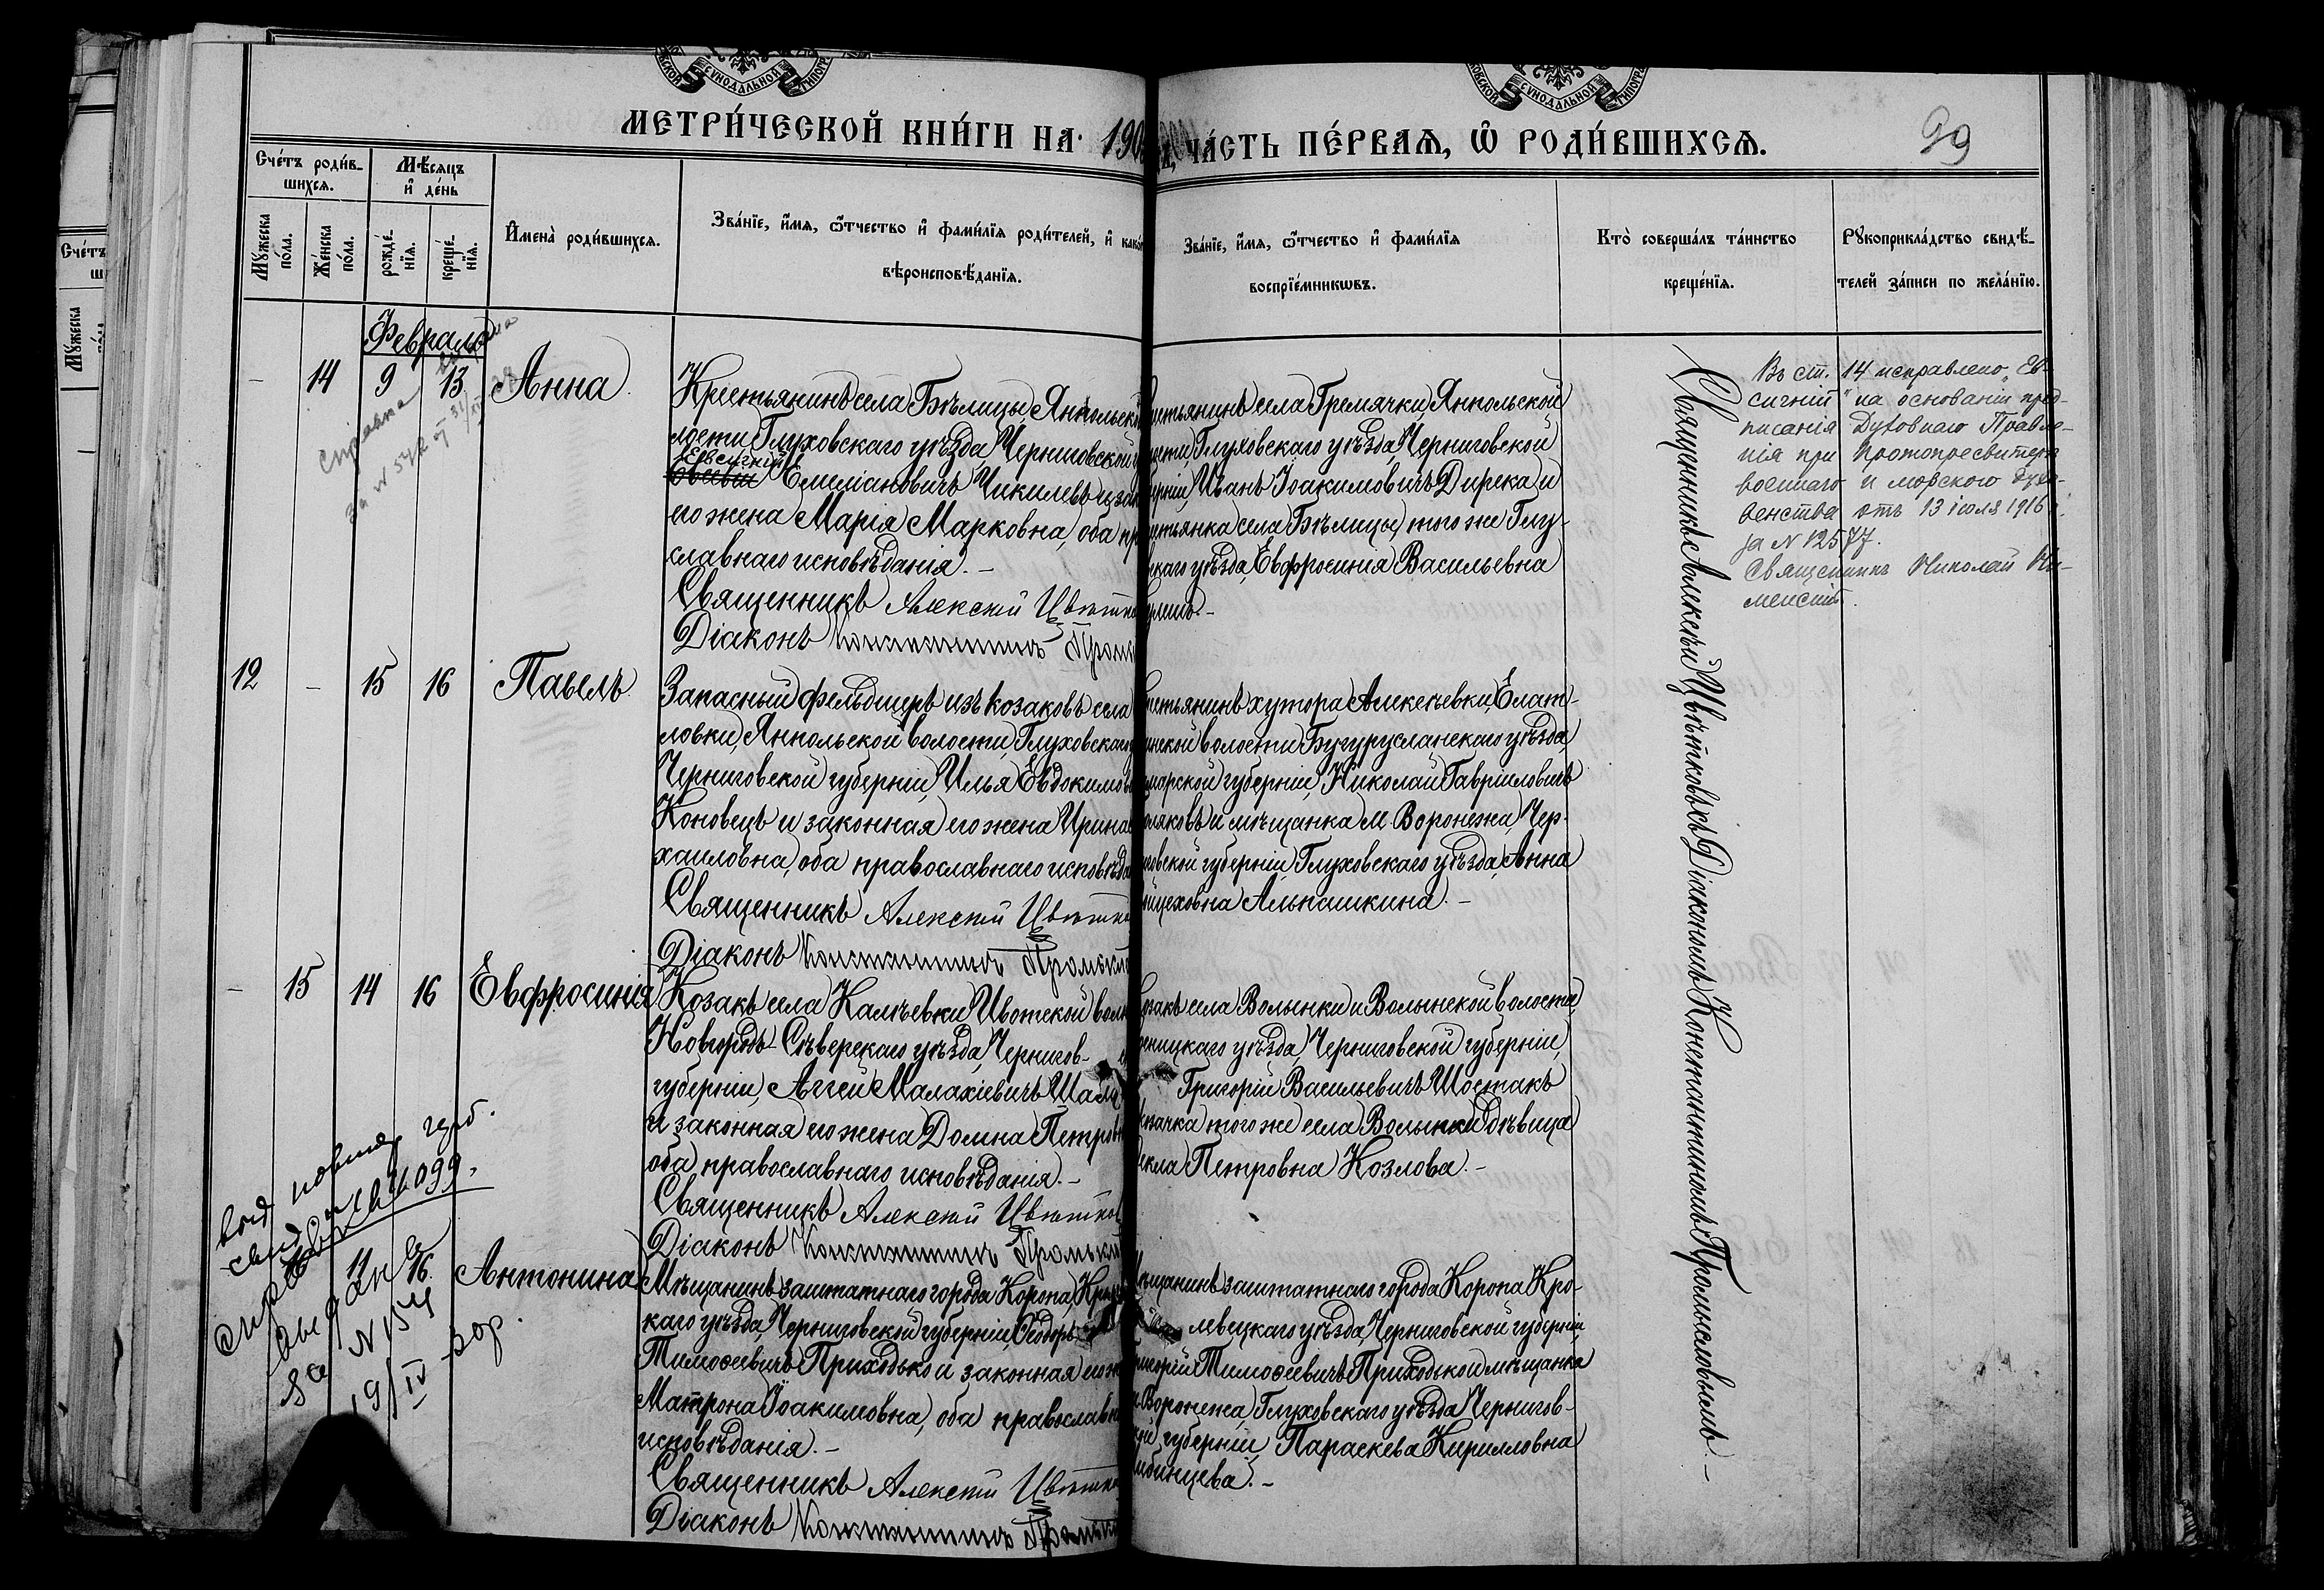 МЕТРИ́ЧЕСКОЙ КНИ́ГИ НА 190
ЧА́СТЬ ПЕ́РВАЯ, Ѡ҆ РОДИ́ВШИХСЯ.
99
Сче́тъ роди́в-
шихся.
Мѣ́сяцъ
и҆ де́нь
Му́жеска
по́ла.
Же́нска
по́ла.
рожде́-
нїя.
креще́-
нїя.
И҆мена̀ роди́вшихся.
Зва́нїе, и҆́мя, ѻ҆́тчество и҆ фами́лїя роди́телей, и҆
вѣроисповѣ́данїя.
Зва́нїе, и҆́мя, ѻ҆́тчество и҆ фами́лїя
воспрїе́мникѡвъ.
Кто̀ соверша́лъ та́инство
креще́нїя.
Рꙋкоприкла́дство свидѣ́-
телей за́писи по жела́нїю.
Февраль
— 14 9 13 Анна.
Справка
за N 572
Крестьянинъ села Бѣлицы, Ямпольской
лости Глуховскаго уѣзда, Черниговской
Евсигній
Емеліановичъ Чикилевъ и зак
его жена Марія Марковна, оба пр
славнаго исповѣданія. —
Священникъ Алексѣй Цвѣтко
Діаконъ Константинъ Пром
стьянинъ села Гремячки, Ямпольской
лости, Глуховскаго уѣзда, Черниговской
ерніи, Иванъ Іоакимовичъ Дирека и
стьянка села Бѣлицы, того же Глу-
скаго уѣзда, Евфросинія Васильевна
Въ ст. 14 исправлено „Ев-
сигній" на основаніи пред-
писанія Духовнаго Правле-
нія при Протопресвитерѣ
военнаго и морского духо-
венства отъ 13 іюля 1916 г.
за N 12577.
Священникъ Николай
12 — 15 16 Павелъ.
Запасный фельдшеръ изъ козаковъ села
ловки, Ямпольской волости, Глуховскаго
Черниговской губерніи, Илья Евдокимов
Коновецъ и законная его жена Ирина
хаиловна, оба православнаго исповѣда
Священникъ Алексѣй Цвѣтко
Діаконъ Константинъ Промысл
стьянинъ хутора Алексѣевки, Елат-
нской волости Бугурусланскаго уѣзда,
марской губерніи, Николай Гавріиловичъ
оляковъ и мѣщанка м. Воронежа, Чер-
говской губерніи, Глуховскаго уѣзда, Анна
Алькашкина. —
— 15 14 16 Евфросинія
Козакъ села Калѣевки, Ивотской вол
Новгородъ-Сѣверскаго уѣзда, Чернигов-
губерніи, Аггей Малахіевичъ
и законная его жена Домна Петров
оба православнаго исповѣданія. —
Священникъ Алексѣй Цвѣтков
Діаконъ Константинъ Промысл
озакъ села Волынки и Волынской волости,
сницкаго уѣзда, Черниговской губерніи,
Григорій Васильевичъ Шостакъ
зачка того же села Волынки дѣвица
екла Петровна Козлова. —
11 16. Антонина
N 154
19/IV
Мѣщанинъ заштатнаго города Коропа, Кро
каго уѣзда, Черниговской губерніи, Ѳеодоръ
Тимоѳеевичъ Приходько и законная его ж
Матрона Іоакимовна, оба православн
исповѣданія. —
Священникъ Алексѣй Цвѣтко
Діаконъ Константинъ Промысл
ѣщанинъ заштатнаго города Коропа Кро-
левецкаго уѣзда, Черниговской губерніи,
ригорій Тимоѳеевичъ Приходько и мѣщанка
м. Воронежа, Глуховскаго уѣзда Чернигов-
губерніи, Параскева Кирилловна
Священникъ Алексѣй Цвѣтковъ съ Діакономъ Константиномъ Промысловымъ. —